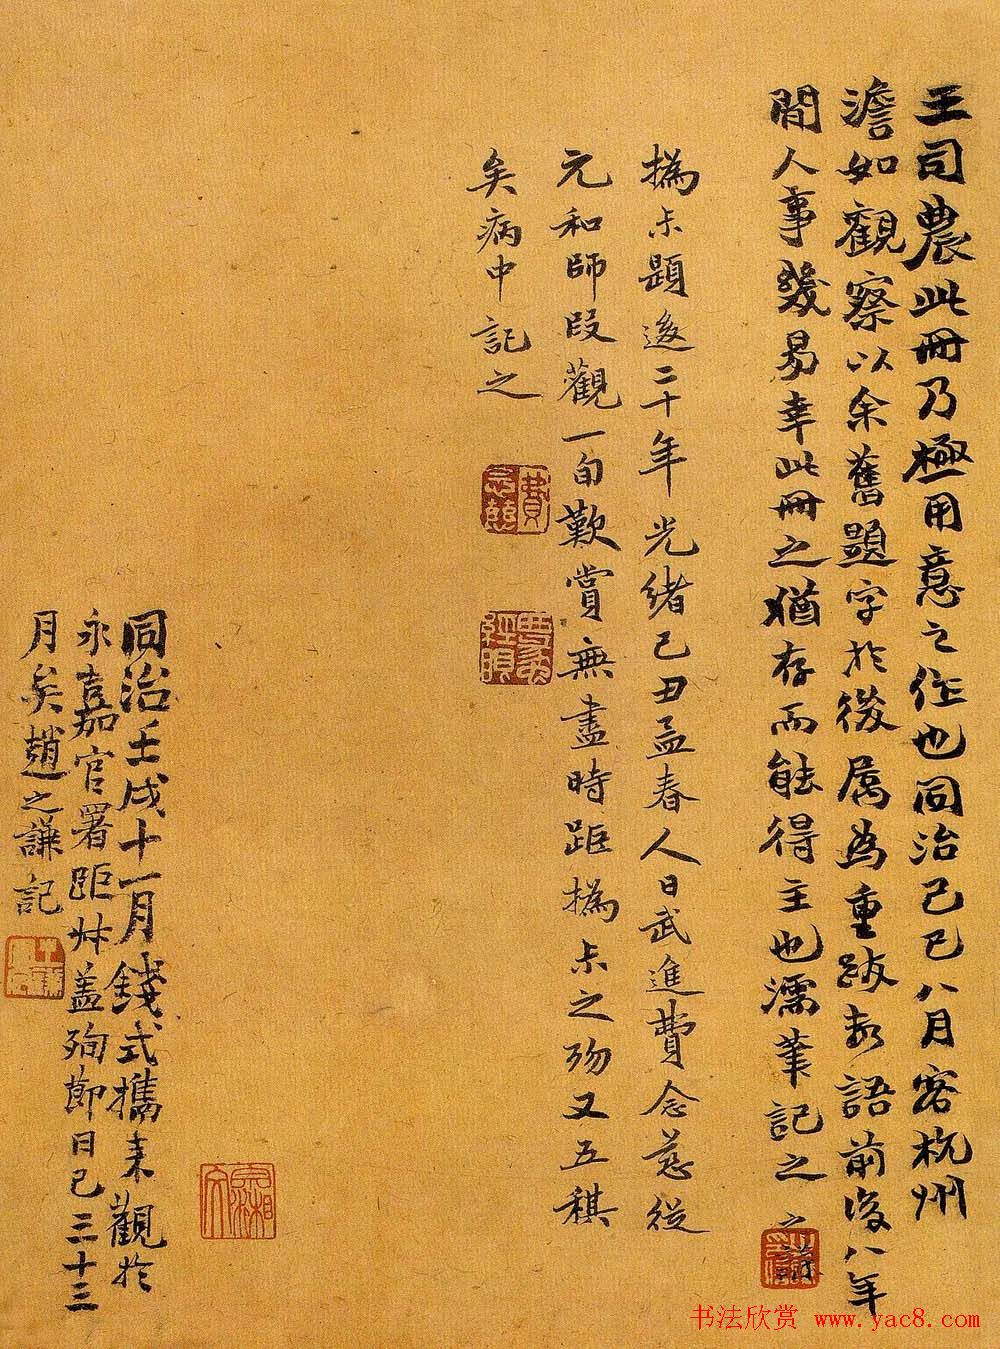 王司農此冊乃極用意之作也同治己巳八月客杭州
澹如觀察以余舊題字於後属為重跋數語前後八年
間人事幾易幸此冊之猶存而能得主也濡筆記之 之謙
撝尗題後二十年光緒己丑孟春人日武進費念慈從
元和師叚觀一旬歎賞無盡時距撝尗之歿又五稘
矣病中記之
費念慈
同治壬戌十一月錢式攜来觀於
永嘉官署距尗蓋殉節日已三十三
月矣趙之謙記
书法欣赏 www.yac8.com